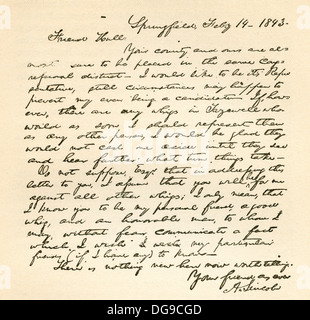 Springfield, Feby 14 - 1843.
Friend Hull
Your county and ours are al-
most sure to be placed in the same Con-
gressional district - I would like to be its Repre-
sentative, still circumstances may happen to
prevent my ever being a candidate - If, how-
ever, there are any whigs in Tazewell who
would as soon I should represent them
as any other person, I would be glad they
would not cast me aside until they see
and hear further what turn things take -
Do not suppose, Esqr that in addressing this
letter to you, I assume that you will be for me
against all other whigs; I only mean, that
I know you to be my personal friend, a good
whig, and an honorable man, to whom I
may, without fear, communicate a fact
which I wish my particular
friends (if I have any) to know -
There is nothing new here now worth telling.
Your friend, as ever
A. Lincoln
alamy stock photo
DG9CGD